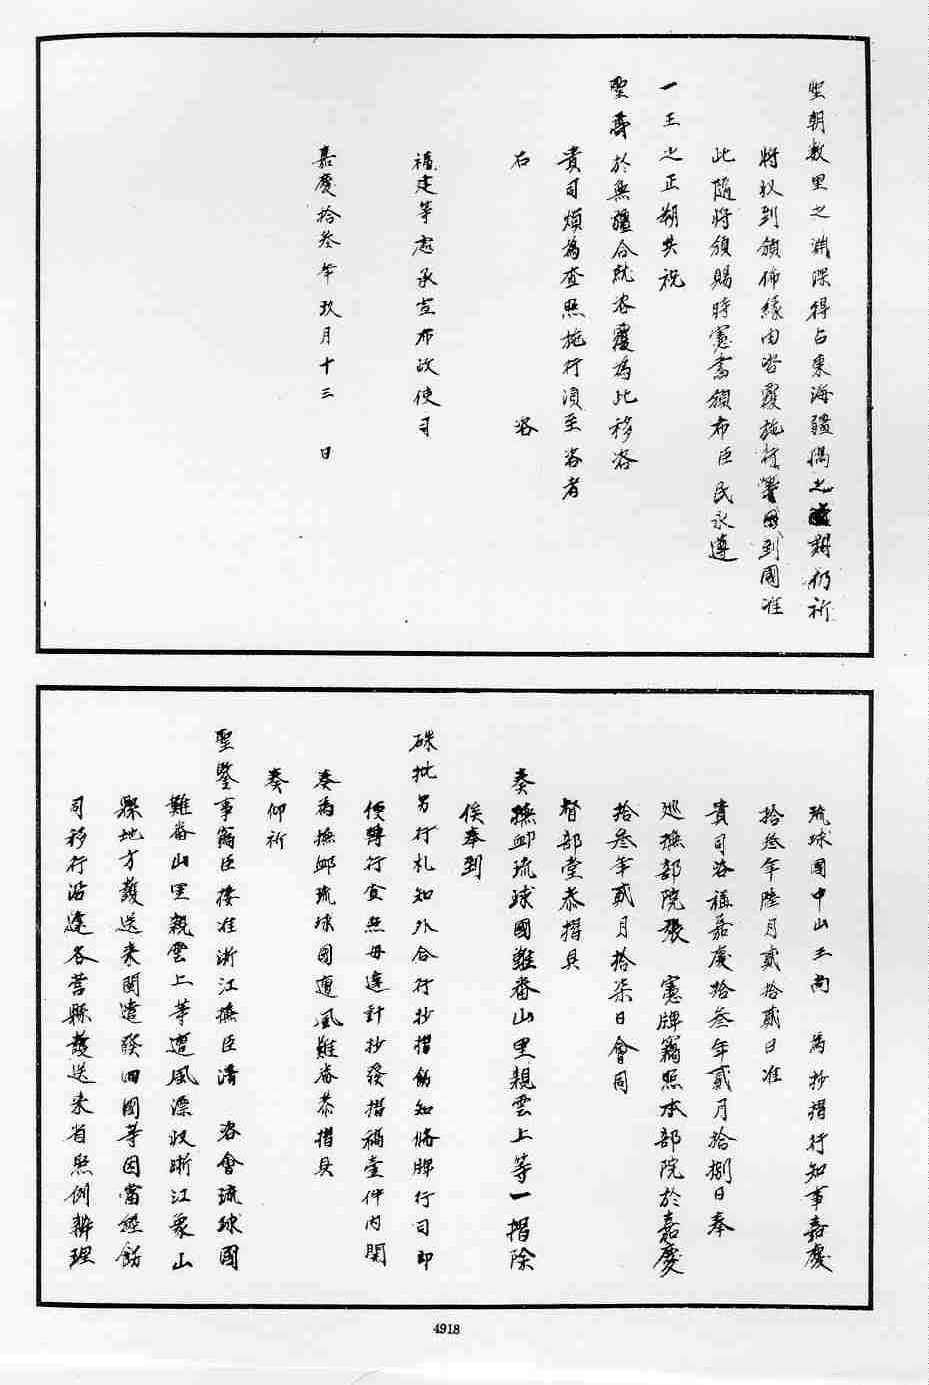 聖朝數里之淵深得占東海疆隅之 期仍祈
將収到頒佈緣由咨覆施行等因到國准
此隨將頒賜時憲書頒布臣民永遵
一王之正朔共祝
聖壽於無疆合就咨覆為此移咨
貴司煩為查照施行湏至咨者
右　咨
福建等處承宣布政使司
嘉慶拾叁年玖月十三　日
琉球國中山王尚　為抄摺行知事嘉慶
拾叁年陸月貳拾貳日准
貴司咨稱嘉慶拾叁年貳月拾捌日奉
廵撫部院張　憲牌竊照本部院於嘉慶
拾叁年貳月拾柒日會同
督部堂恭摺具
奏撫卹琉球國難畨山里親雲上等一摺除
俟奉到
硃批另行札知外合行抄摺飭知俻牌行司即
便轉行查照毋違計抄發摺稿壹件內開
奏為撫卹琉球國遭風難畨恭摺具
奏仰祈
聖鑒事竊臣接准浙江撫臣清　咨會琉球國
難畨山里親雲上等遭風漂収浙江象山
縣地方護送来閩遣發回國等因當經飭
司移行沿途各營縣護送来省照例辦理
4918